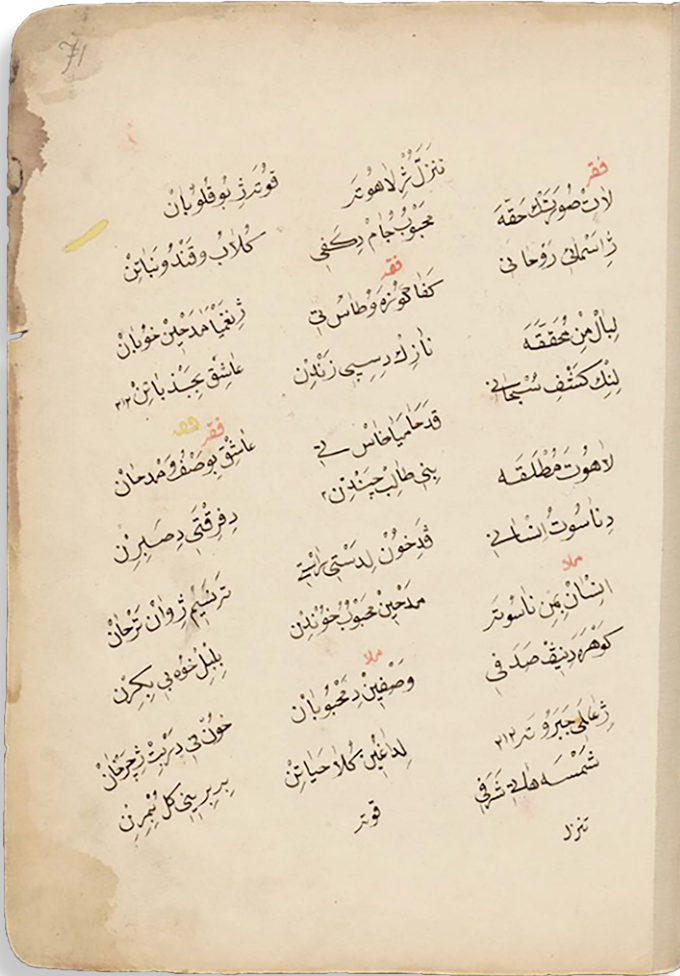 71
فقر
لات صُورتك حقّه
ژ اسمانی روحانی
لبال من محققه
لنك كشف سبحانی
لاهوت مطلقه
دناسوت انسانی
ملا
انسان بمن ناسوتر
كوهره دنیف صدفی
ژ عالی جبروتر
شمسه هاتی شرفی
تنزل
تنزل ژ لاهوتر
محبوب جام دكفی
فقه
كفا كوزه و طاس تی
نازك دسیبی زندن
قدحا میا خاس تی
بنی طالب چندن
قدخون لدستی راستی
مدحین محبوب خوندن
ملا
وصفین دمحبوبان
لداغین كلا حیاتن
قوتر
قوتر ژ بو قلوبان
كلاب و قند و نباتن
ژ نغمیا مدحین خوبان
عاشق بجذباتن
فقر
عاشق بوصف و مدحان
دفرقتی دصبرن
ترنیم ژوان ترحان
بلبل خوه بی بكرن
خون تی دربت ژ جرحان